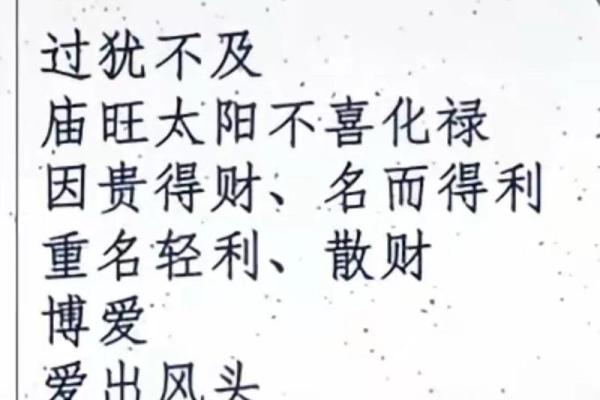 过犹不及
庙旺太阳不喜化禄
因贵得财、名而得利
重名轻利、散财
博爱
爱出风头